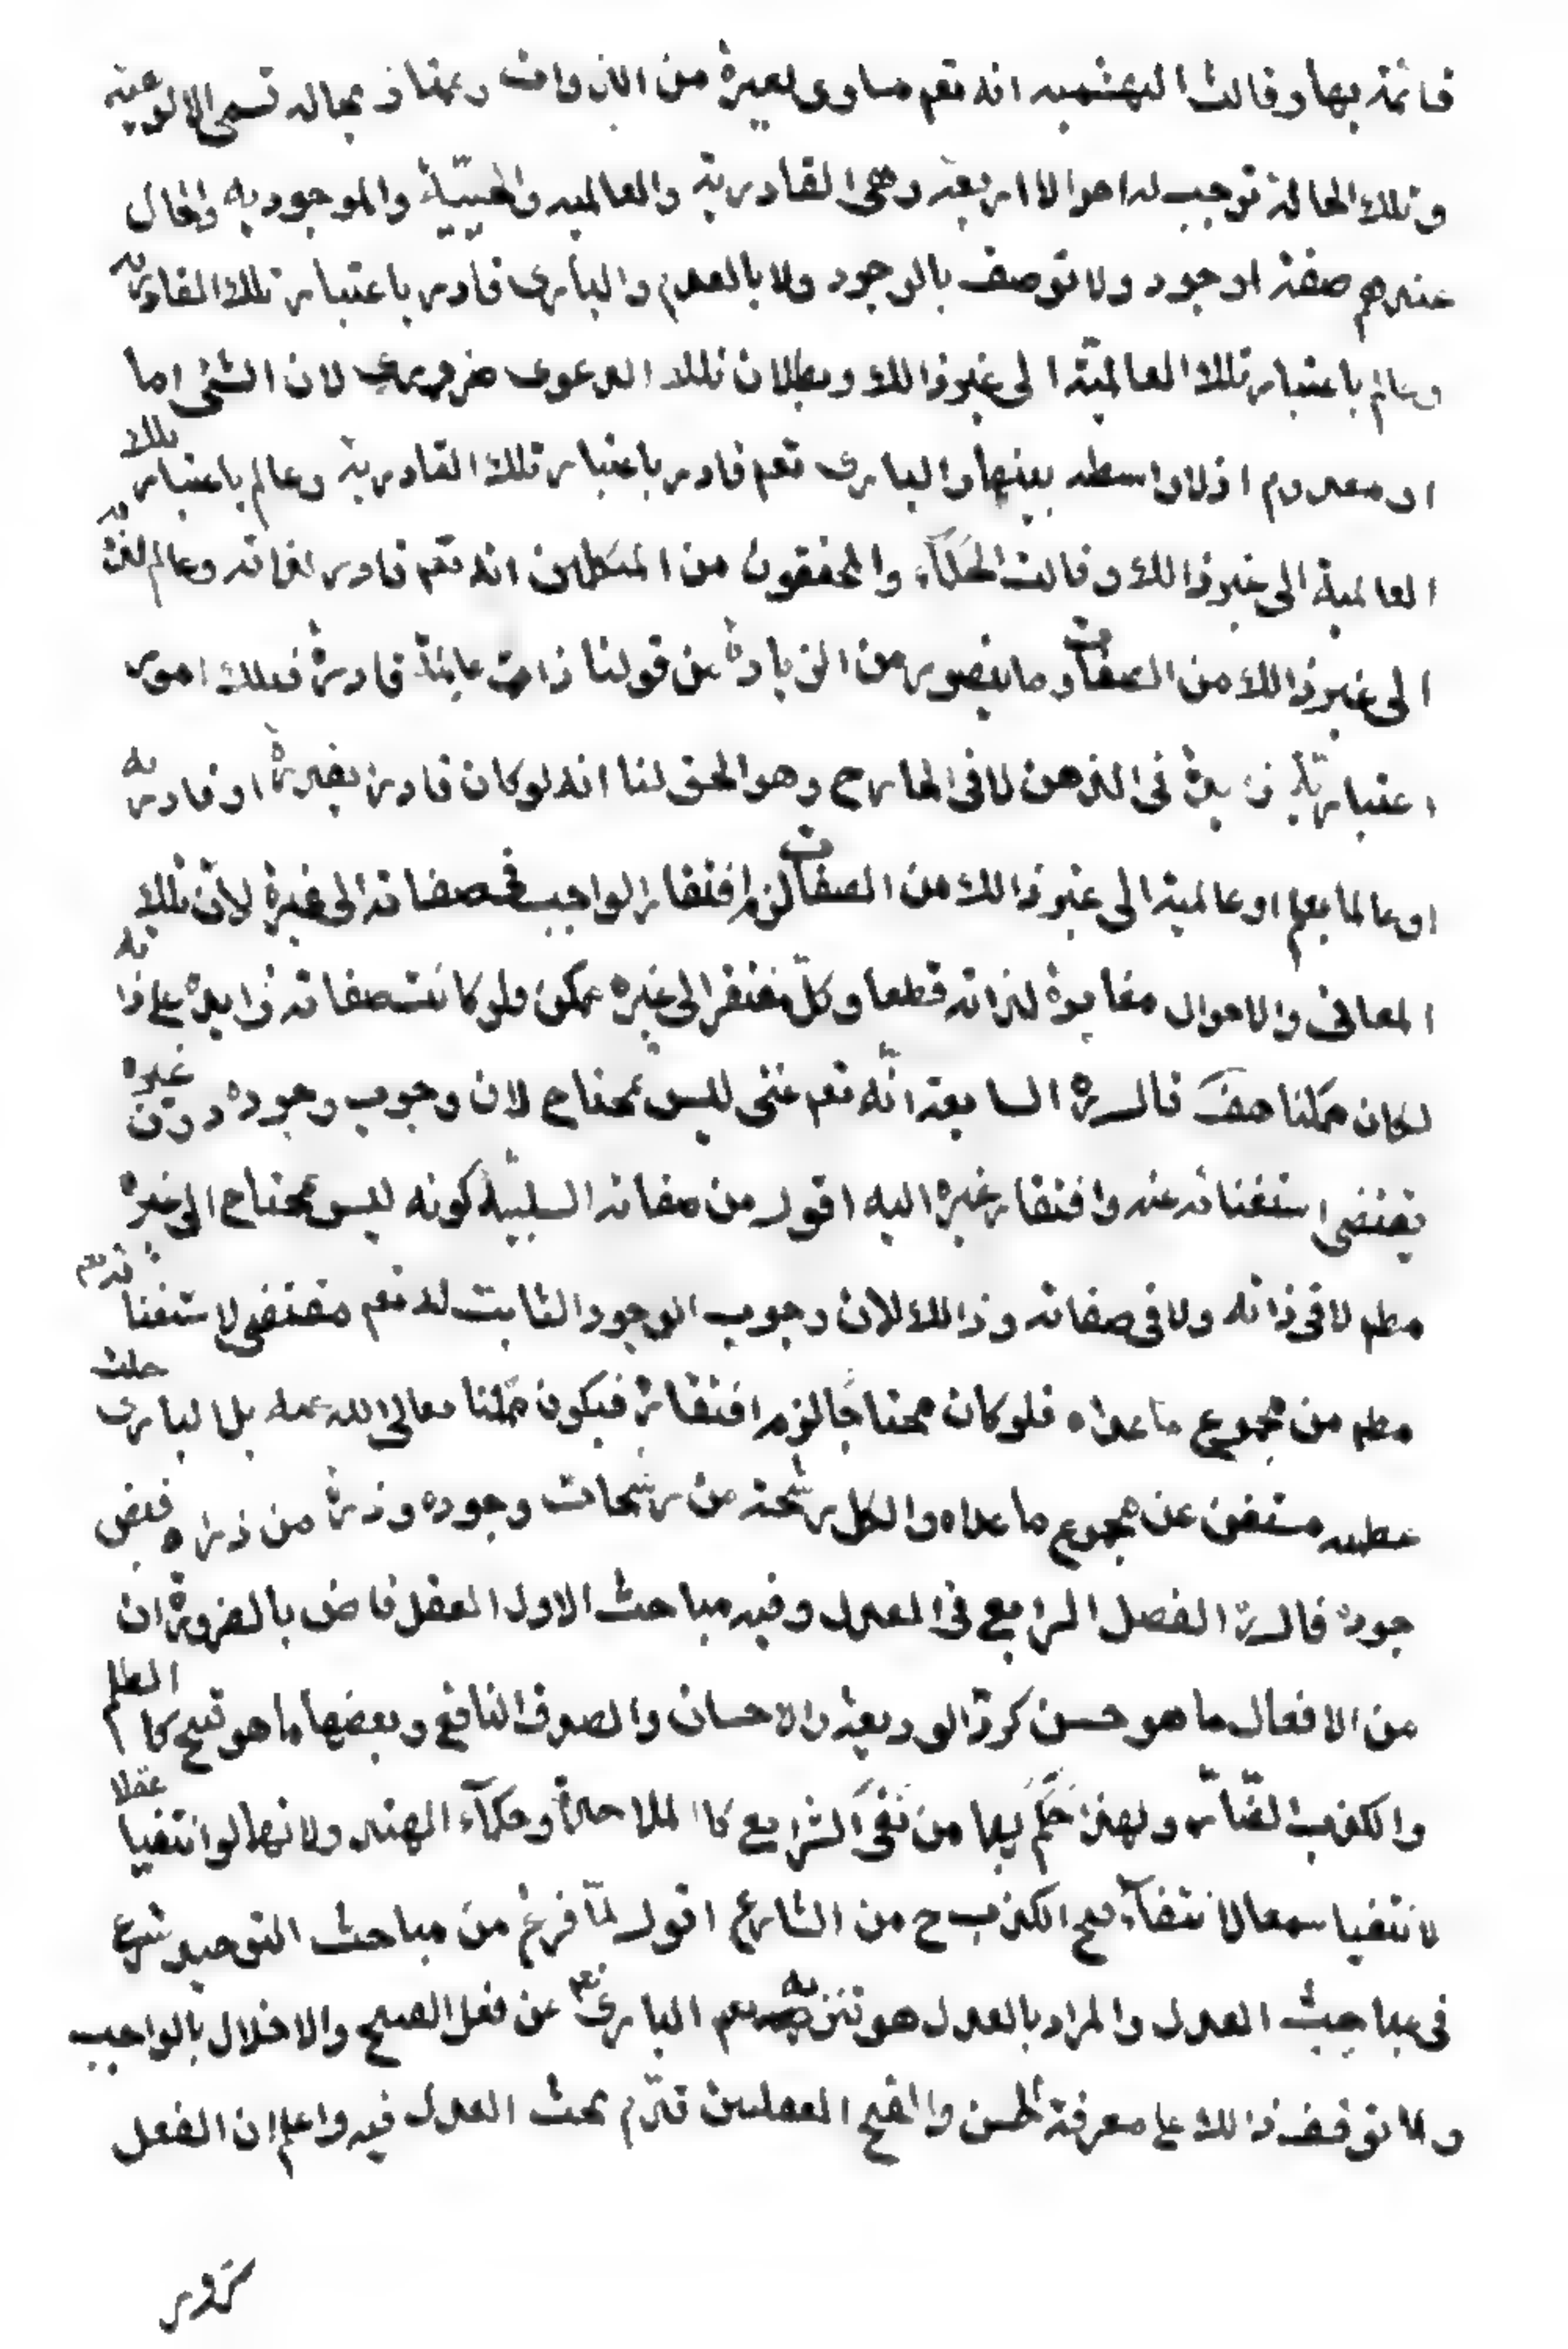 قائمة بها وقالت البهشميه انه تعم مساوى لغيرة من الذوات ويمتاز بحاله تسمى الالوهيته
وتلك الحالة توجب له احوالا اربعة وهى القادرية والعالميه والحييّة والموجوديه والحال
عندهم صفة لوجود ولا توصف بالوجود ولا بالعدم والبارى قادر باعتبار تلك القادريه
وعالم باعتبار تلك العالميّة الى غير ذالك وبطلان تلك الدعوى ضرورى لان الشئى اما
او معدوم اذ لا واسطه بينهما والبارى تعم قادر باعتبار تلك القادرية وعالم باعتبار تلك
العالمية الى غير ذالك وقالت الحكمآء والمحققون من المتكلمين انه تعم قادر لذاته وعالم لذاته
الى غير ذالك من الصفات وما يتصور من الزيادة من قولنا ذات عالمة قادرة فتلك امور
اعتباريّة زايدة فى الذهن لا فى الخارج وهو الحق لنا انه لو كان قادرا بقدرة او قادريه
او عالما بعلم او عالمية الى غير ذالك من الصفات لزم افتقار الواجب فى صفاته الى غيرة لأنّ تلك
المعانى والاحوال مغايرة لذاته قطعا وكلّ مفتقر الى غيره ممكن فلو كانت صفاته زايدة على ذاته
لكان ممكنا هف قال رة السابعة انّه تعم غنى ليس بمحتاج لان وجوب وجوده دون غيره
يقتضى استغنائه عنه وافتقار غيره اليه اقول من صفاته السلبيّة كونه ليس بمحتاج الى غيرة
مطم لا فى ذاته ولا فى صفاته وذالك لان وجوب الوجود الثابت له تعم مقتضى لاستغنائه تعم
مطم من مجموع ما عداه فلو كان محتاجًا لزم افتقاره فيكون ممكنا تعالى الله عنه بل البارى جلت
عظمته مستغن عن مجموع ما عداه والكل رشحة من رشحات وجوده وذرة من ذره فيض
جوده قال رة الفصل الرابع فى العدل وفيه مباحث الاول العقل قاض بالضرورة ان
من الافعال ما هو حسن كردّ الوديعة والاحسان والصدق النافع وبعضها ما هو قبيح كالظلم
والكذب الضّار ولهذا حَكَمَ بهما من نَفَى الشرايع كا الملاحدة وحكمآء الهند ولانهما لو انتفيا عقلا
لانتفيا سمعا لانتفآء قبح الكذب ح من الشارع اقول لمّا فرغ من مباحث التوحيد شرع
فى مباحث العدل والمراد بالعدل هو تنزيه البارى تعم عن فعل القبيح والاخلال بالواجب
ولما توقف ذالك على معرفة الحسن والقبح العقليين قدّم بحث العدل فيه واعلم ان الفعل